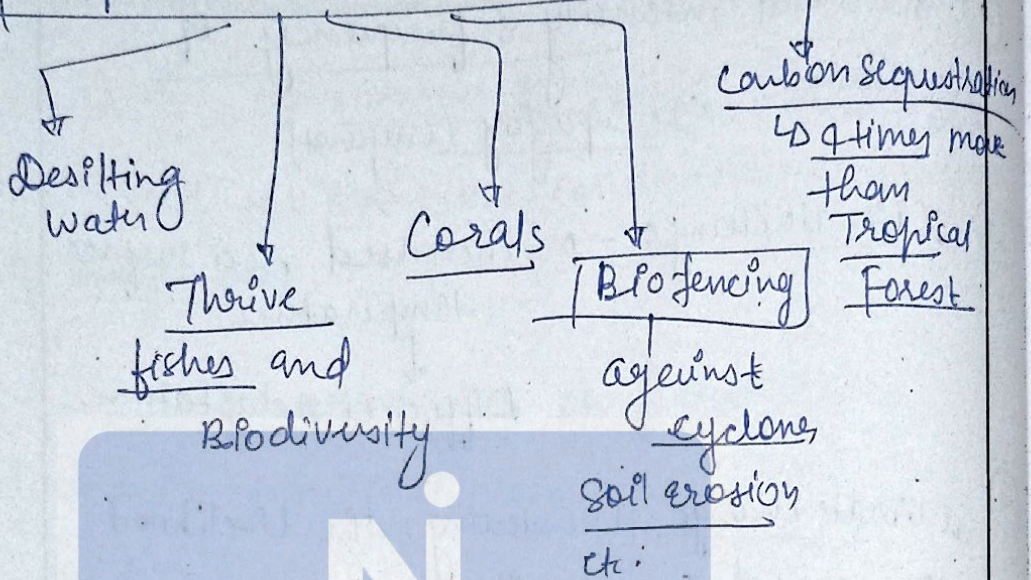 Desilting
water
Thrive
fishes and
Biodiversity
Corals
Biofencing
against
cyclones
soil erosion
etc.
Carbon sequestration
↳ 4 times more
than
Tropical
Forest